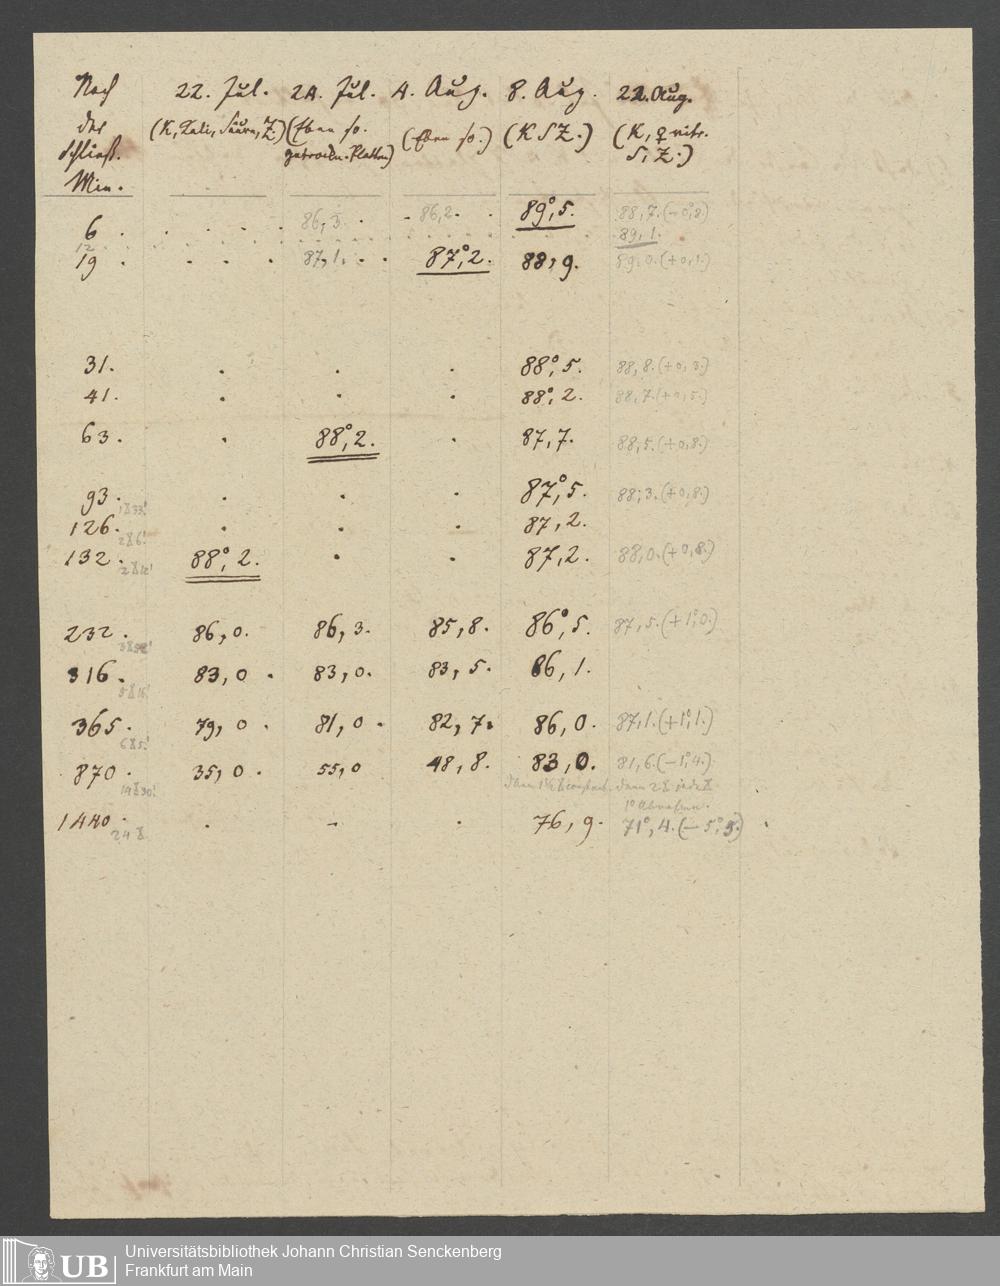 Nach 22. Jul. 24. Jul. 4. Aug. 8. Aug. 22. Aug.
der (K, Kali, Säure, Z.) (Eben so. (Eben so.) (K S Z.) (K, ♀ nitr.
Schließ. getrockn. Platten) S, Z.)
Min.
6 . . . . . 86,3. . - 86,2. . 89°,5. 88,7. (-0,8)
12 . . . . . 89,1.
19 . . . . 87,1. . . 87°,2. 88,9. 89,0. (+0,1.)
31. . . . 88°,5. 88,8. (+0,3.)
41. . . . 88°,2. 88,7. (+0,5.)
63. . 88°,2. . 87,7. 88,5. (+0,8.)
93. . . . 87°,5. 88,3. (+0,8.)
1 33'
126. . . . 87,2.
2 6'
132. 88°,2. . . 87,2. 88,0. (+0,8.)
2 12'
232. 86,0. 86,3. 85,8. 86°,5. 87,5. (+1°,0.)
3 52'
316. 83,0. 83,0. 83,5. 86,1.
5 16'
365. 79,0. 81,0. 82,7. 86,0. 87,1. (+1°,1.)
6 5'
870. 35,0. 55,0 48,8. 83,0. 81,6. (-1°,4.)
14 30' dann 2 jede
1° Abnahme.
1440. . - . 76,9. 71°,4. (-5°,5.)
24
UB
Universitätsbibliothek Johann Christian Senckenberg
Frankfurt am Main